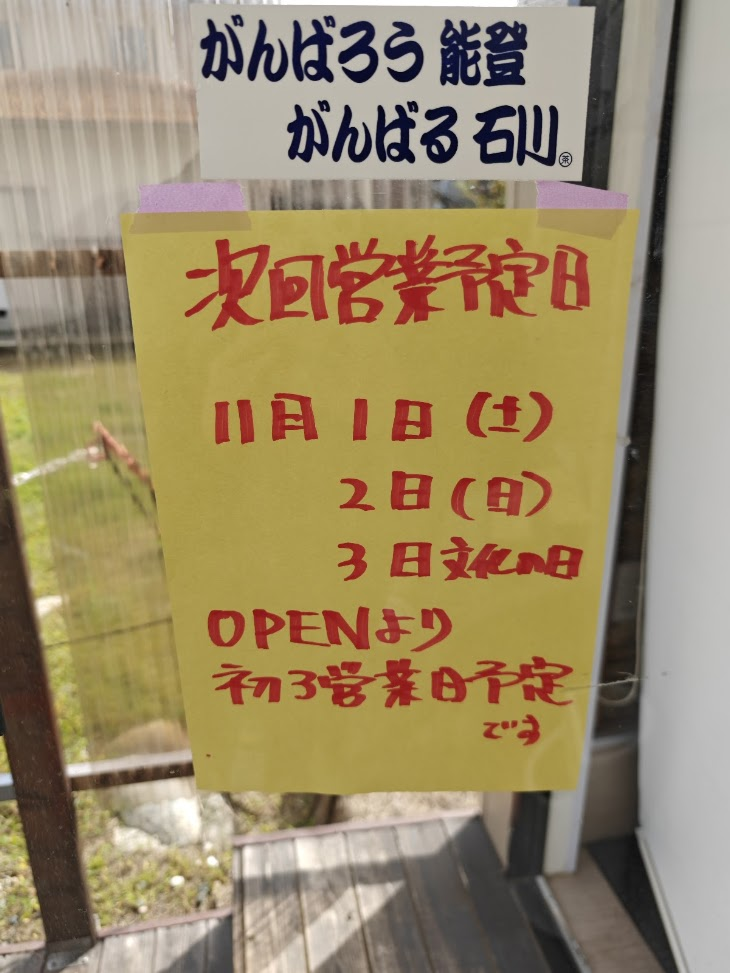 がんばろう 能登
がんばる 石川。
㊎
次回営業予定日
11月 1日 (土)
2日 (日)
3日 文化の日
OPENより
初3営業日予定
です